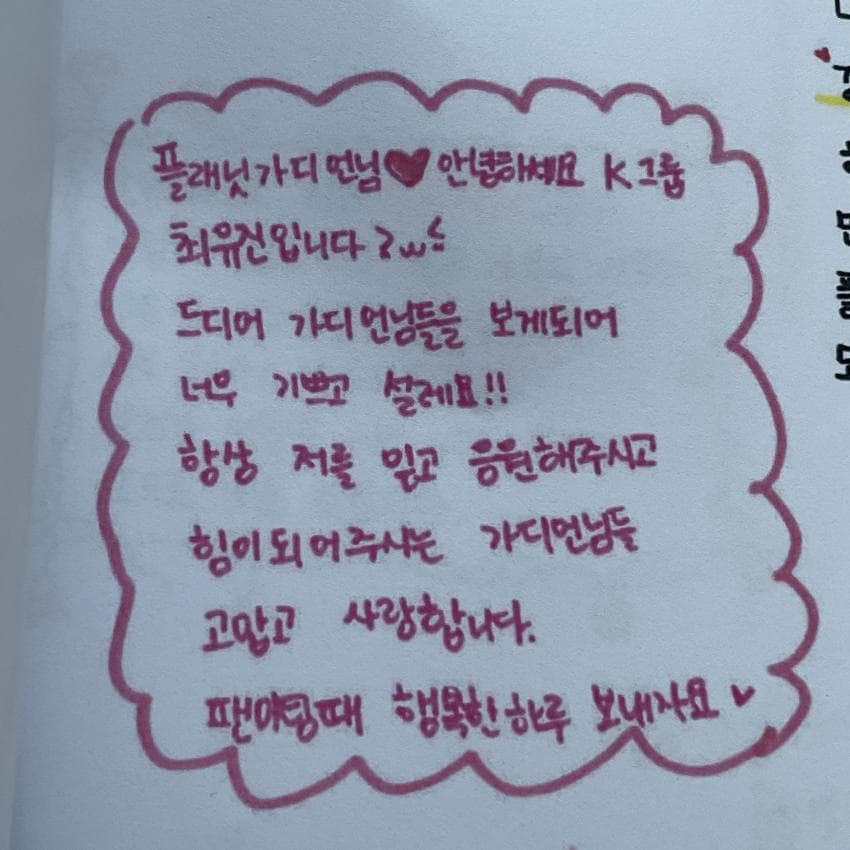 플래닛가디언님♥안녕하세요 K그룹
최유진입니다
드디어 가디언님들을 보게되어
너무 기쁘고 설레요!!
항상 저를 믿고 응원해주시고
힘이되어주시는 가디언님들
고맙고 사랑합니다.
팬미팅때 행복한하루 보내자요